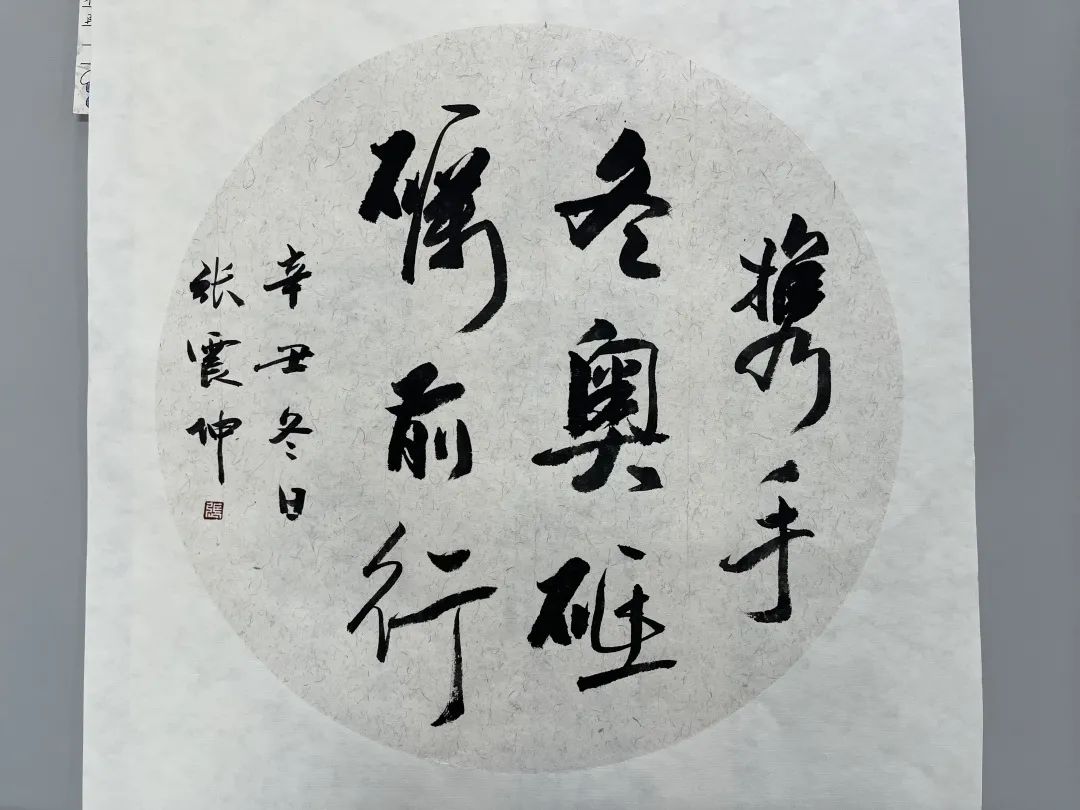 携手
冬奥砥
礪前行
辛丑冬日
张震坤
張